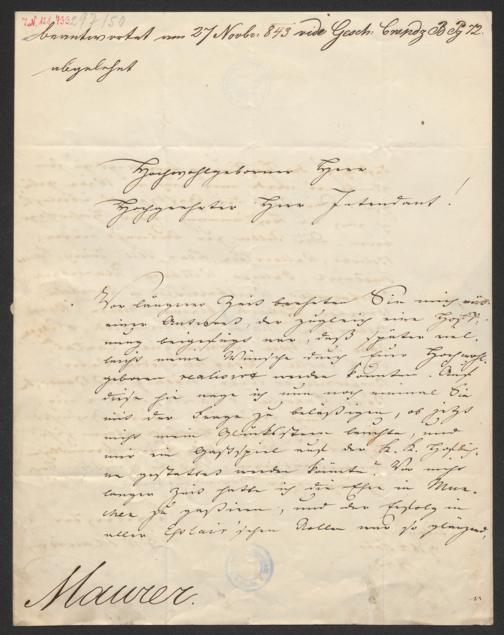 J.N. 121.933 297/50
beantwortet am 27 Novbr. 843 vide Gesch: B Pg 72.
abgelehnt
Hochwohlgeborner Herr
Hochgeehrter Herr Intendant!
Vor längerer Zeit beehrten Sie mich mit
einer Antwort, der zugleich eine Hoff-
nung beigefügt war, daß später viel-
leicht meine Wünsche durch Euer Hochwohl-
geboren realisirt werden könnten. Auf
diese hin wage ich nun noch einmal Sie
mit der Frage zu belästigen, ob jetzt
nicht mein Glücksstern leuchte, und
mir ein Gastspiel auf der k. k. Hofbüh-
ne gestattet werden könnte? Vor nicht
langer Zeit hatte ich die Ehre in Mün-
chen zu gastiren, und der Erfolg in
allen Eslair'schen Rollen war so glänzend,
Maurer.